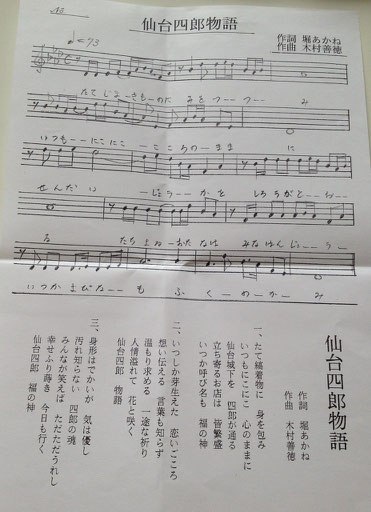 仙台四郎物語
作詞 堀あかね
作曲 木村善徳
♩=73
たてじまきものに みをつーつー み
いつもーにこにこ ーこころのまま に
せんだい ーじょうーかを しろうがとーー
る たちよるーおたなは みなはんじょーう
いつかよびなーーも ふ くーのーかー み
仙台四郎物語
作詞 堀あかね
作曲 木村善徳
一、たて縞着物に 身を包み
いつもにこにこ 心のままに
仙台城下を 四郎が通る
立ち寄るお店は 皆繁盛
いつか呼び名も 福の神
二、いつしか芽生えた 恋いごころ
想い伝える 言葉も知らず
温もり求める 一途な祈り
人情溢れて 花と咲く
仙台四郎 物語
三、身形はでかいが 気は優し
汚れ知らない 四郎の魂
みんなが笑えば ただただうれし
幸せふり蒔き 今日も行く
仙台四郎 福の神